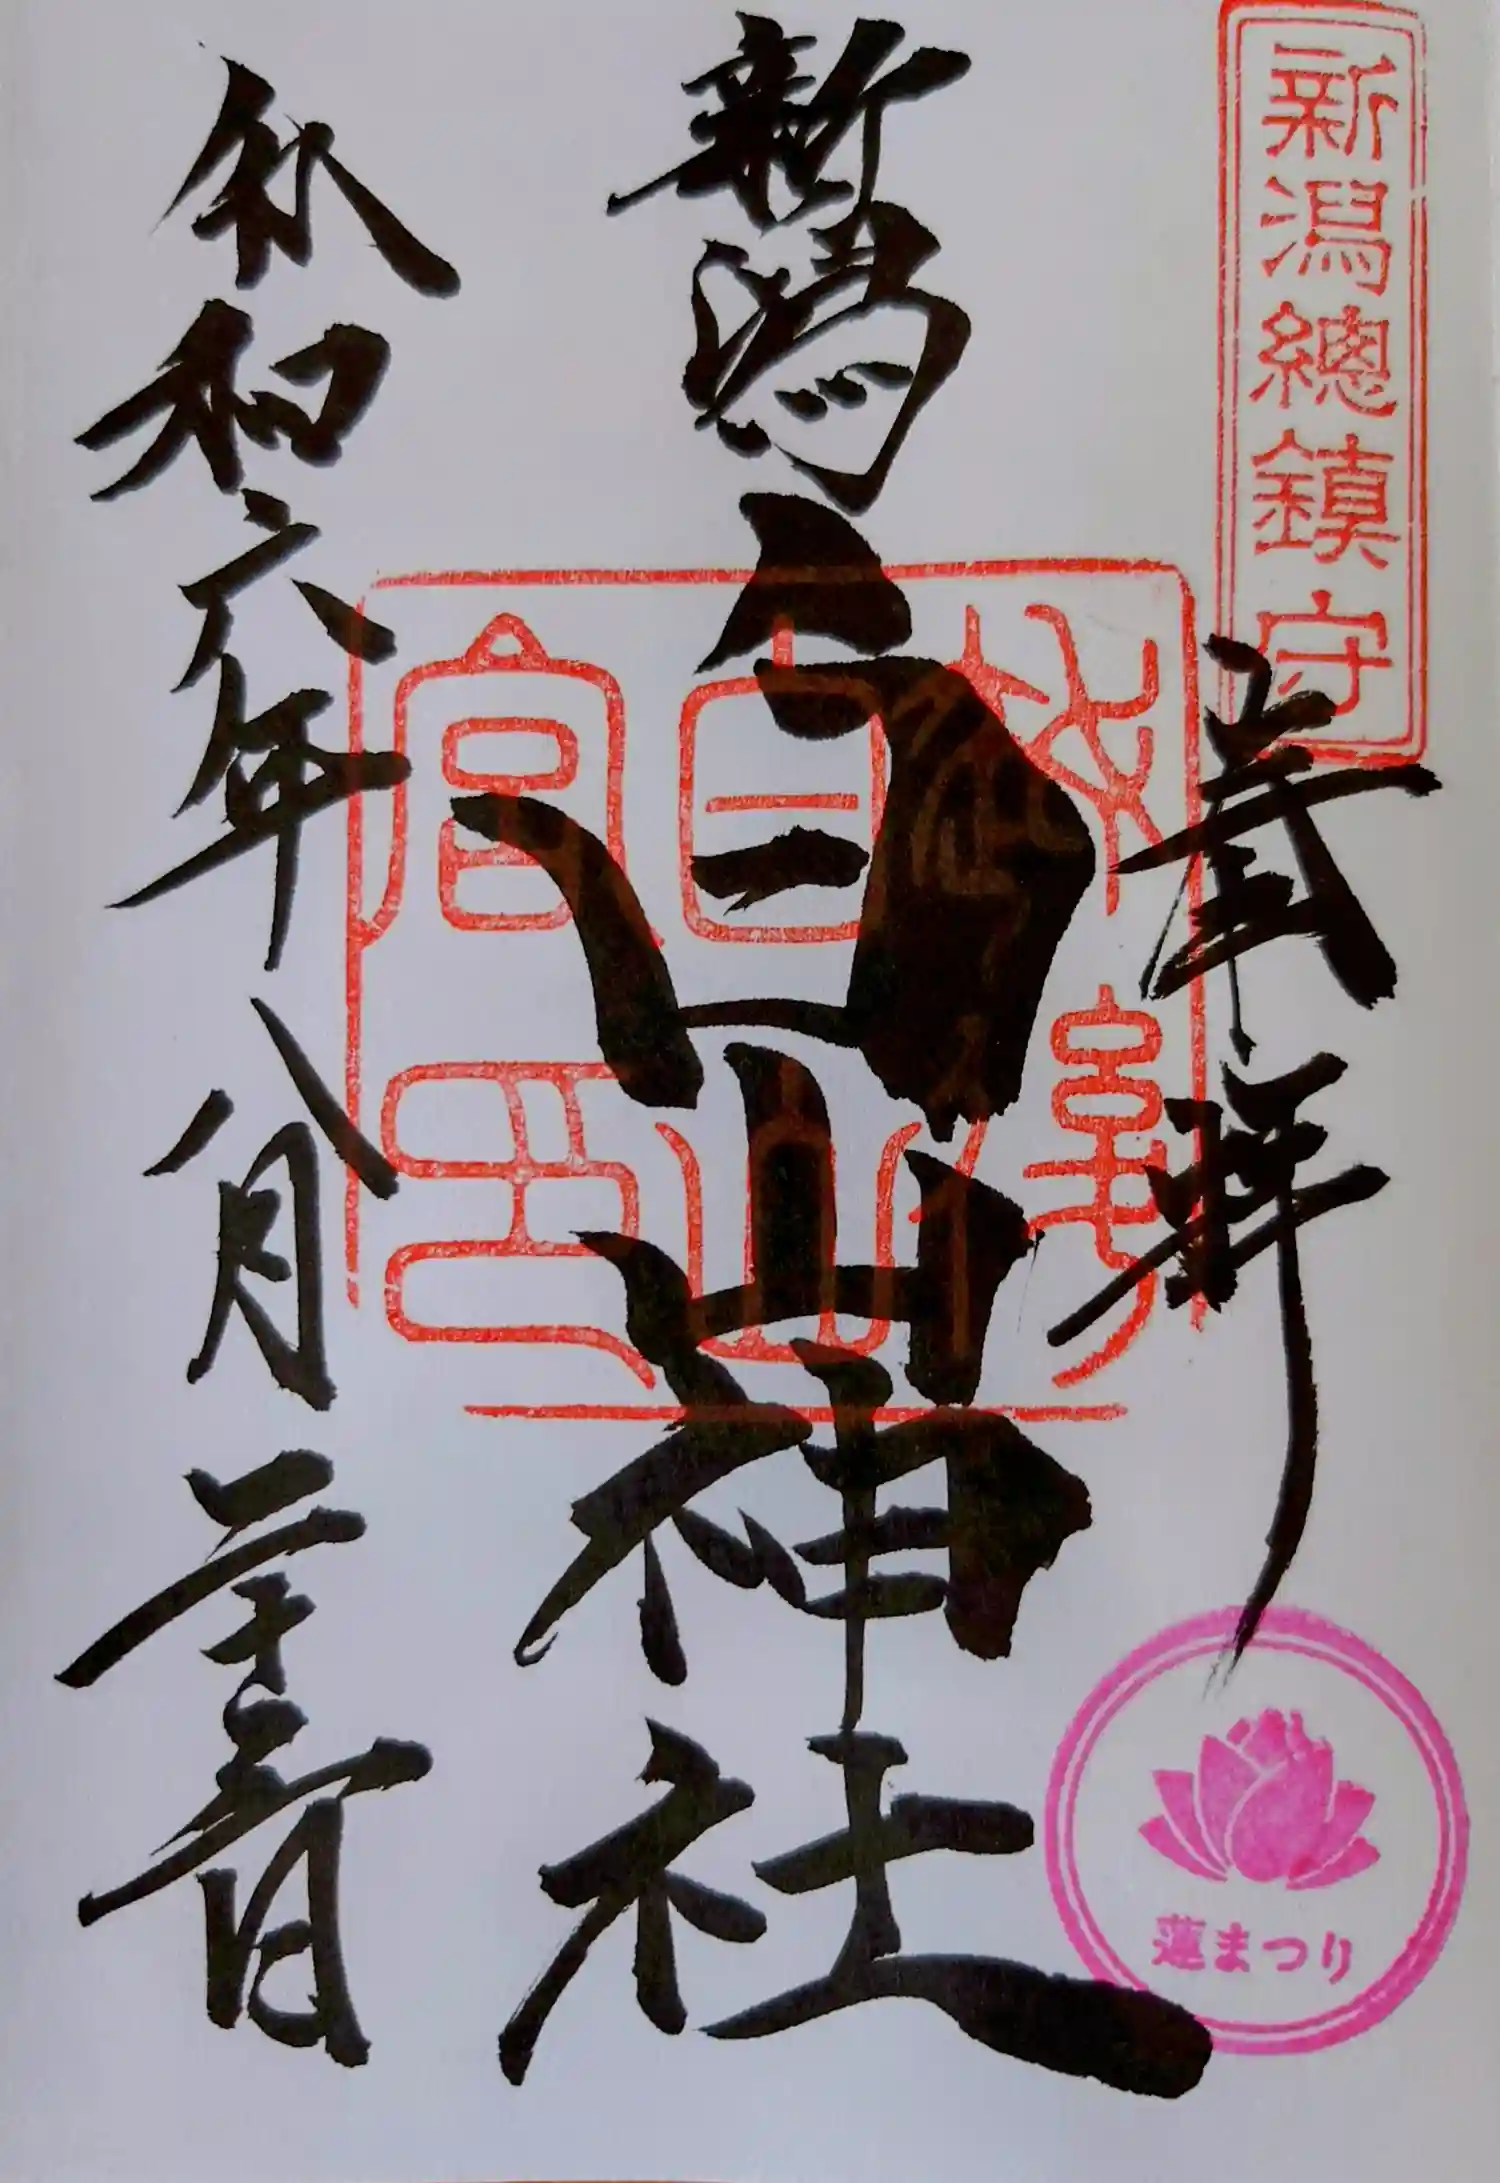 新潟總鎮守
奉拝
新潟白山神社
白山
宮印
令和六年八月二十日
蓮まつり